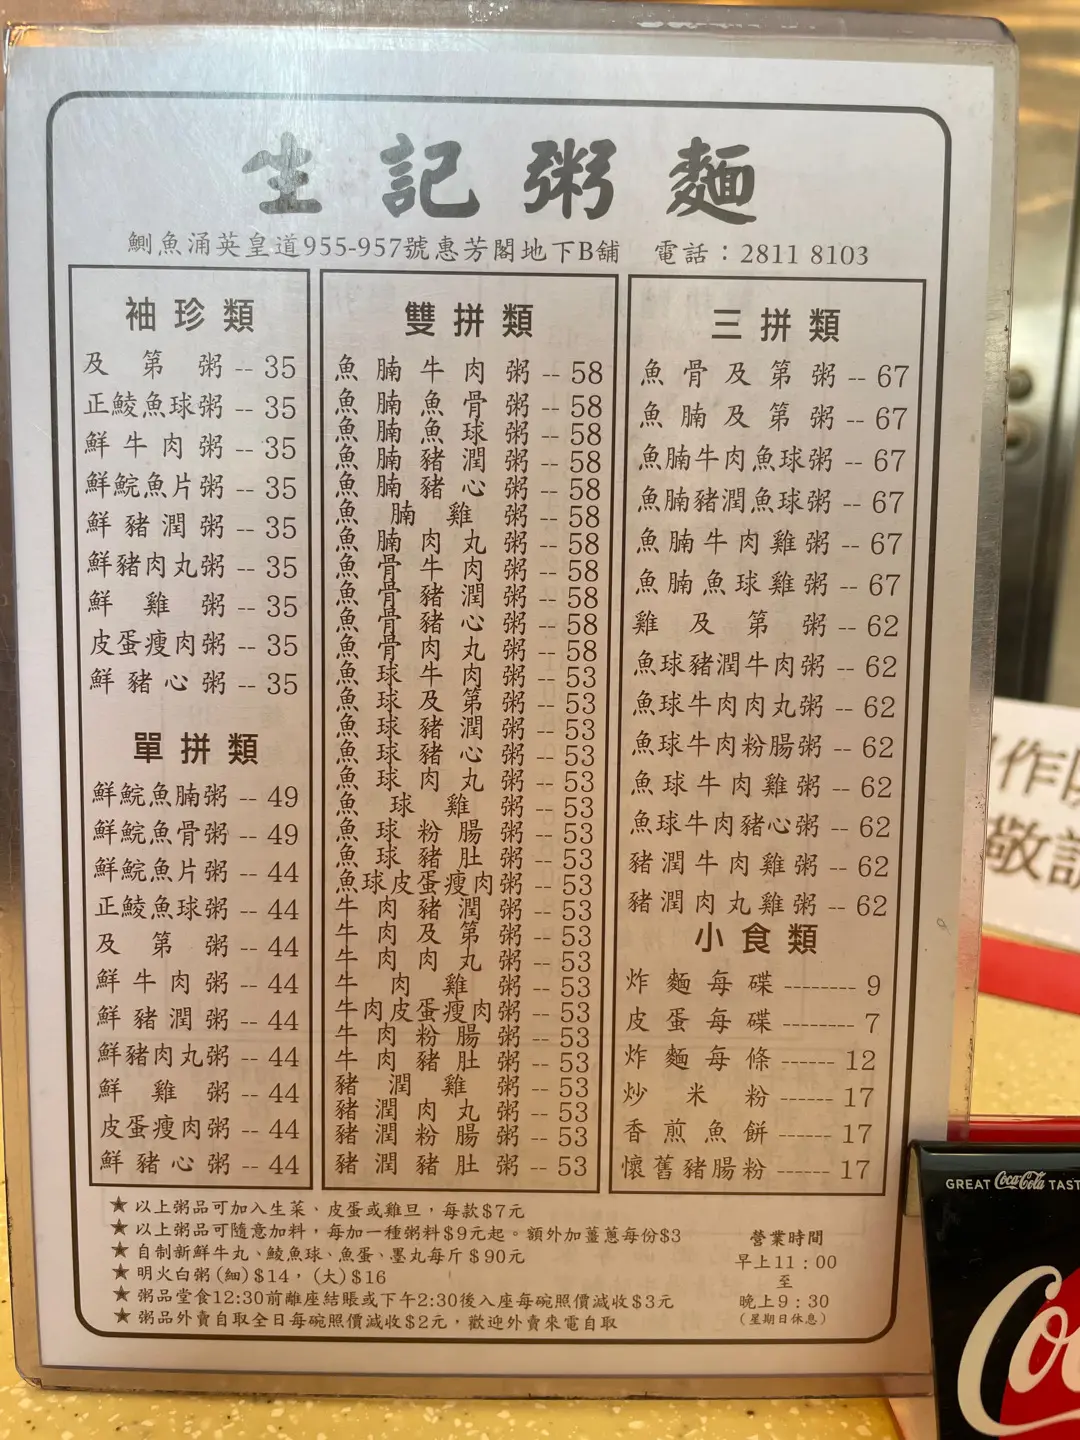 生記粥麵
鰂魚涌英皇道955-957號惠芳閣地下B舖 電話：2811 8103
袖珍類
及第粥 -- 35
正鯪魚球粥 -- 35
鮮牛肉粥 -- 35
鮮鯇魚片粥 -- 35
鮮豬潤粥 -- 35
鮮豬肉丸粥 -- 35
鮮雞粥 -- 35
皮蛋瘦肉粥 -- 35
鮮豬心粥 -- 35
單拼類
鮮鯇魚腩粥 -- 49
鮮鯇魚骨粥 -- 49
鮮鯇魚片粥 -- 44
正鯪魚球粥 -- 44
及第粥 -- 44
鮮牛肉粥 -- 44
鮮豬潤粥 -- 44
鮮豬肉丸粥 -- 44
鮮雞粥 -- 44
皮蛋瘦肉粥 -- 44
鮮豬心粥 -- 44
雙拼類
魚腩牛肉粥 -- 58
魚腩魚骨粥 -- 58
魚腩魚球粥 -- 58
魚腩豬潤粥 -- 58
魚腩豬心粥 -- 58
魚腩雞粥 -- 58
魚腩肉丸粥 -- 58
魚骨牛肉粥 -- 58
魚骨豬潤粥 -- 58
魚骨豬心粥 -- 58
魚骨肉丸粥 -- 58
魚球牛肉粥 -- 53
魚球及第粥 -- 53
魚球豬潤粥 -- 53
魚球豬心粥 -- 53
魚球肉丸粥 -- 53
魚球雞粥 -- 53
魚球粉腸粥 -- 53
魚球豬肚粥 -- 53
魚球皮蛋瘦肉粥 -- 53
牛肉豬潤粥 -- 53
牛肉及第粥 -- 53
牛肉肉丸粥 -- 53
牛肉雞粥 -- 53
牛肉皮蛋瘦肉粥 -- 53
牛肉粉腸粥 -- 53
牛肉豬肚粥 -- 53
豬潤雞粥 -- 53
豬潤肉丸粥 -- 53
豬潤粉腸粥 -- 53
豬潤豬肚粥 -- 53
三拼類
魚骨及第粥 -- 67
魚腩及第粥 -- 67
魚腩牛肉魚球粥 -- 67
魚腩豬潤魚球粥 -- 67
魚腩牛肉雞粥 -- 67
魚腩魚球雞粥 -- 67
雞及第粥 -- 62
魚球豬潤牛肉粥 -- 62
魚球牛肉肉丸粥 -- 62
魚球牛肉粉腸粥 -- 62
魚球牛肉雞粥 -- 62
魚球牛肉豬心粥 -- 62
豬潤牛肉雞粥 -- 62
豬潤肉丸雞粥 -- 62
小食類
炸麵每碟 -------- 9
皮蛋每碟 -------- 7
炸麵每條 ------ 12
炒米粉 ------ 17
香煎魚餅 ------ 17
懷舊豬腸粉 ------ 17
★以上粥品可加入生菜、皮蛋或雞旦，每款$7元
★以上粥品可隨意加料，每加一種粥料$9元起。額外加薑蔥每份$3
★自制新鮮牛丸、鯪魚球、魚蛋、墨丸每斤$90元
★明火白粥(細)$14，(大)$16
★粥品堂食12:30前離座結賬或下午2:30後入座每碗照價減收$3元
★粥品外賣自取全日每碗照價減收$2元，歡迎外賣來電自取
營業時間
早上11：00
至
晚上9：30
(星期日休息)
作
敬
GREAT Coca-Cola TAST
Co